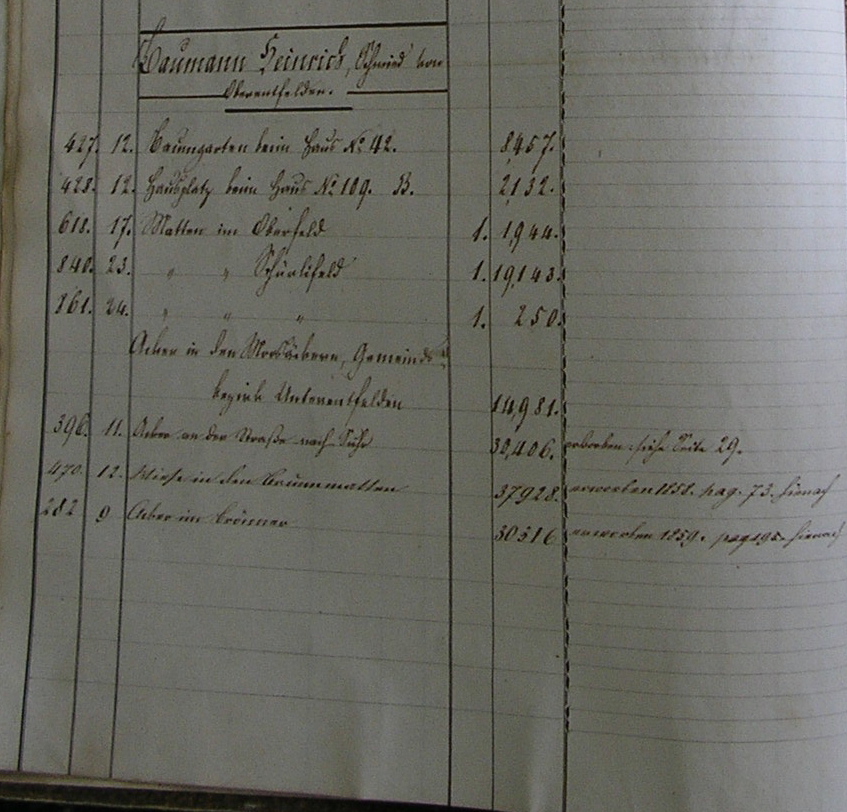 Baumann Heinrich, Schmied von
Oberentfelden.
427. 12. Baumgarten beim Haus No 42. 8,457.
428. 12. Hausplatz beim Haus No 109. B. 2,132.
618. 17. Matten im Oberfeld 1. 1,944.
840. 23. " " Schürlifeld 1. 19,143.
861. 24. " " " 1. 250.
Acker in den Moosäckern, Gemeinds
bezirk Unterentfelden 14,981.
396. 11. Acker an der Straße nach Suhr 30,406. siehe Seite 29.
470. 12. Wiese in den Brunnmatten 37928. erworben 1858. pag. 73. hienach
282 9 Acker im 30516 erworben 1859. pag 195. hienach